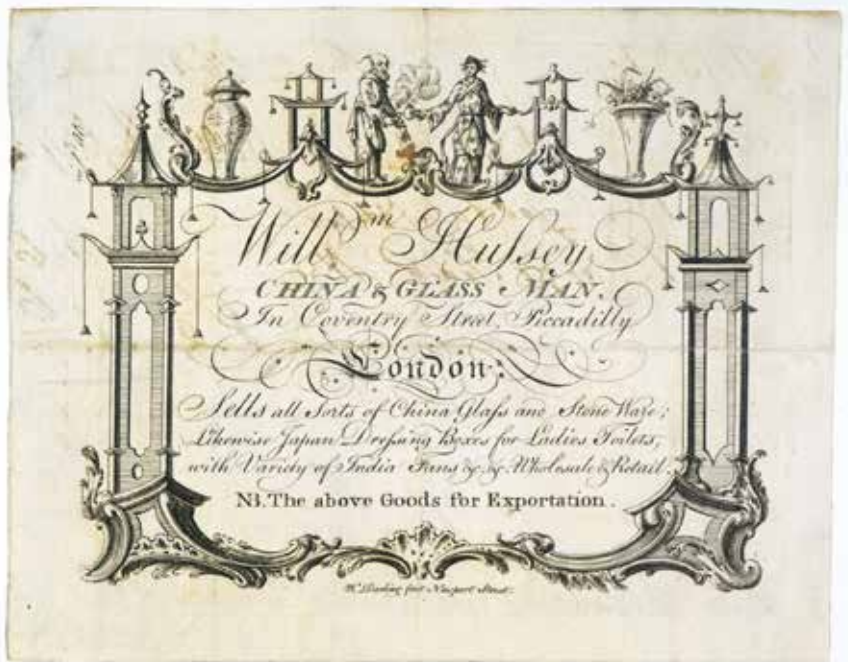 Will.m Hussey
CHINA & GLASS MAN,
In Coventry Street, Piccadilly
London:
Sells all Sorts of China Glass and Stone Ware;
Likewise Japan Dressing Boxes for Ladies Toilets,
with Variety of India Fans &c. &c. Wholesale & Retail.
NB. The above Goods for Exportation.
Wm. Darling fecit Newport Street.